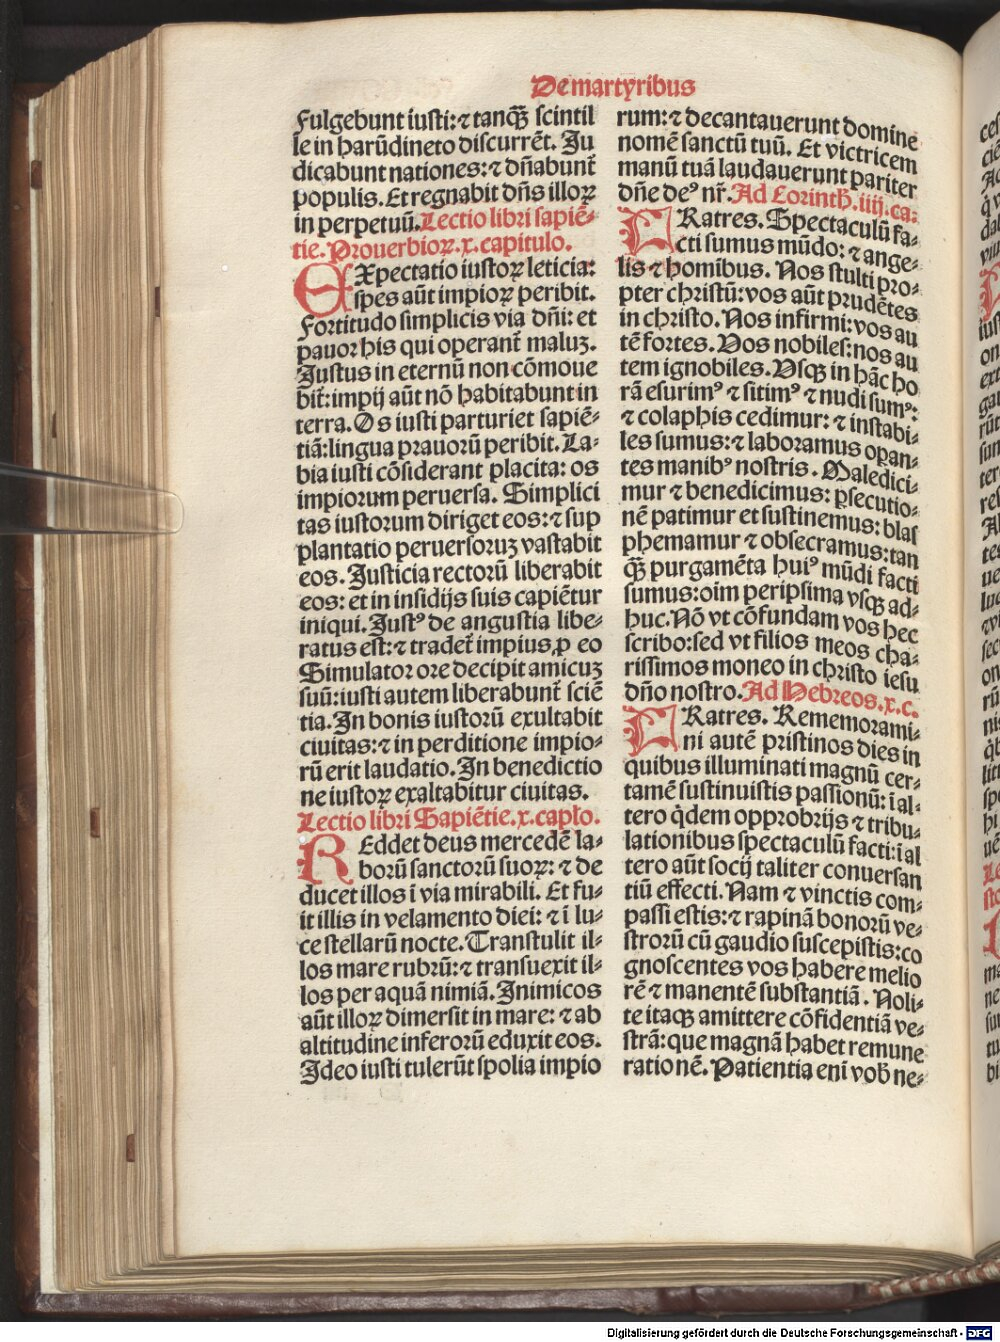 De martyribus
Fulgebunt iusti: ⁊ tanq̃ scintil
le in harũdineto discurrẽt. Ju
dicabunt nationes: ⁊ dñabunt̃
populis. Et regnabit dñs illoꝝ
in perpetuũ. Lectio libri sapiẽ-
tie. Prouerbioꝝ. x. capitulo.
EXpectatio iustoꝝ leticia:
spes aũt impioꝝ peribit.
Fortitudo simplicis via dñi: et
pauor his qui operant̃ maluꝫ.
Justus in eternũ non cõmoue
bit̃: impij aũt nõ habitabunt in
terra. Os iusti parturiet sapiẽ-
tiã: lingua prauorũ peribit. La-
bia iusti cõsiderant placita: os
impiorum peruersa. Simplici
tas iustorum diriget eos: ⁊ sup
plantatio peruersoruꝫ vastabit
eos. Justicia rectorũ liberabit
eos: et in insidijs suis capiẽtur
iniqui. Justꝰ de angustia libe-
ratus est: ⁊ tradet̃ impius ꝓ eo
Simulator ore decipit amicuꝫ
suũ: iusti autem liberabunt̃ sciẽ
tia. In bonis iustorũ exultabit
ciuitas: ⁊ in perditione impio-
rũ erit laudatio. In benedictio
ne iustoꝝ exaltabitur ciuitas.
Lectio libri Sapiẽtie. x. caplo.
REddet deus mercedẽ la-
borũ sanctorũ suoꝝ: ⁊ de
ducet illos ĩ via mirabili. Et fu-
it illis in velamento diei: ⁊ ĩ lu-
ce stellarũ nocte. Transtulit il-
los mare rubrũ: ⁊ transuexit il-
los per aquã nimiã. Inimicos
aũt illoꝝ dimersit in mare: ⁊ ab
altitudine inferorũ eduxit eos.
Ideo iusti tulerũt spolia impio
rum: ⁊ decantauerunt domine
nomẽ sanctũ tuũ. Et victricem
manũ tuã laudauerunt pariter
dñe deꝰ nr̃. Ad Corinth. iiij. ca:
FRatres. Spectaculũ fa-
cti sumus mũdo: ⁊ ange-
lis ⁊ homĩbus. Nos stulti pro-
pter christũ: vos aũt prudẽtes
in christo. Nos infirmi: vos au
tẽ fortes. Vos nobiles: nos au
tem ignobiles. Vsq̃ in hãc ho
rã esurimꝰ ⁊ sitimꝰ ⁊ nudi sumꝰ:
⁊ colaphis cedimur: ⁊ instabi-
les sumus: ⁊ laboramus opan-
tes manibꝰ nostris. Maledici-
mur ⁊ benedicimus: ꝑsecutio-
nẽ patimur et sustinemus: blas
phemamur ⁊ obsecramus: tan
q̃ purgamẽta huiꝰ mũdi facti
sumus: oim peripsima vsq̃ ad-
huc. Nõ vt cõfundam vos hec
scribo: sed vt filios meos cha-
rissimos moneo in christo iesu
dño nostro. Ad Hebreos. x. c.
FRatres. Rememorami-
ni autẽ pristinos dies in
quibus illuminati magnũ cer-
tamẽ sustinuistis passionũ: ĩ al-
tero q̇dem opprobrijs ⁊ tribu-
lationibus spectaculũ facti: ĩ al
tero aũt socij taliter conuersan
tiũ effecti. Nam ⁊ vinctis com-
passi estis: ⁊ rapinã bonorũ ve-
strorũ cũ gaudio suscepistis: co
gnoscentes vos habere melio
rẽ ⁊ manentẽ substantiã. Noli-
te itaq̃ amittere cõfidentiã ve-
strã: que magnã habet remune
rationẽ. Patientia enĩ vob̃ ne-
Digitalisierung gefördert durch die Deutsche Forschungsgemeinschaft - DFG